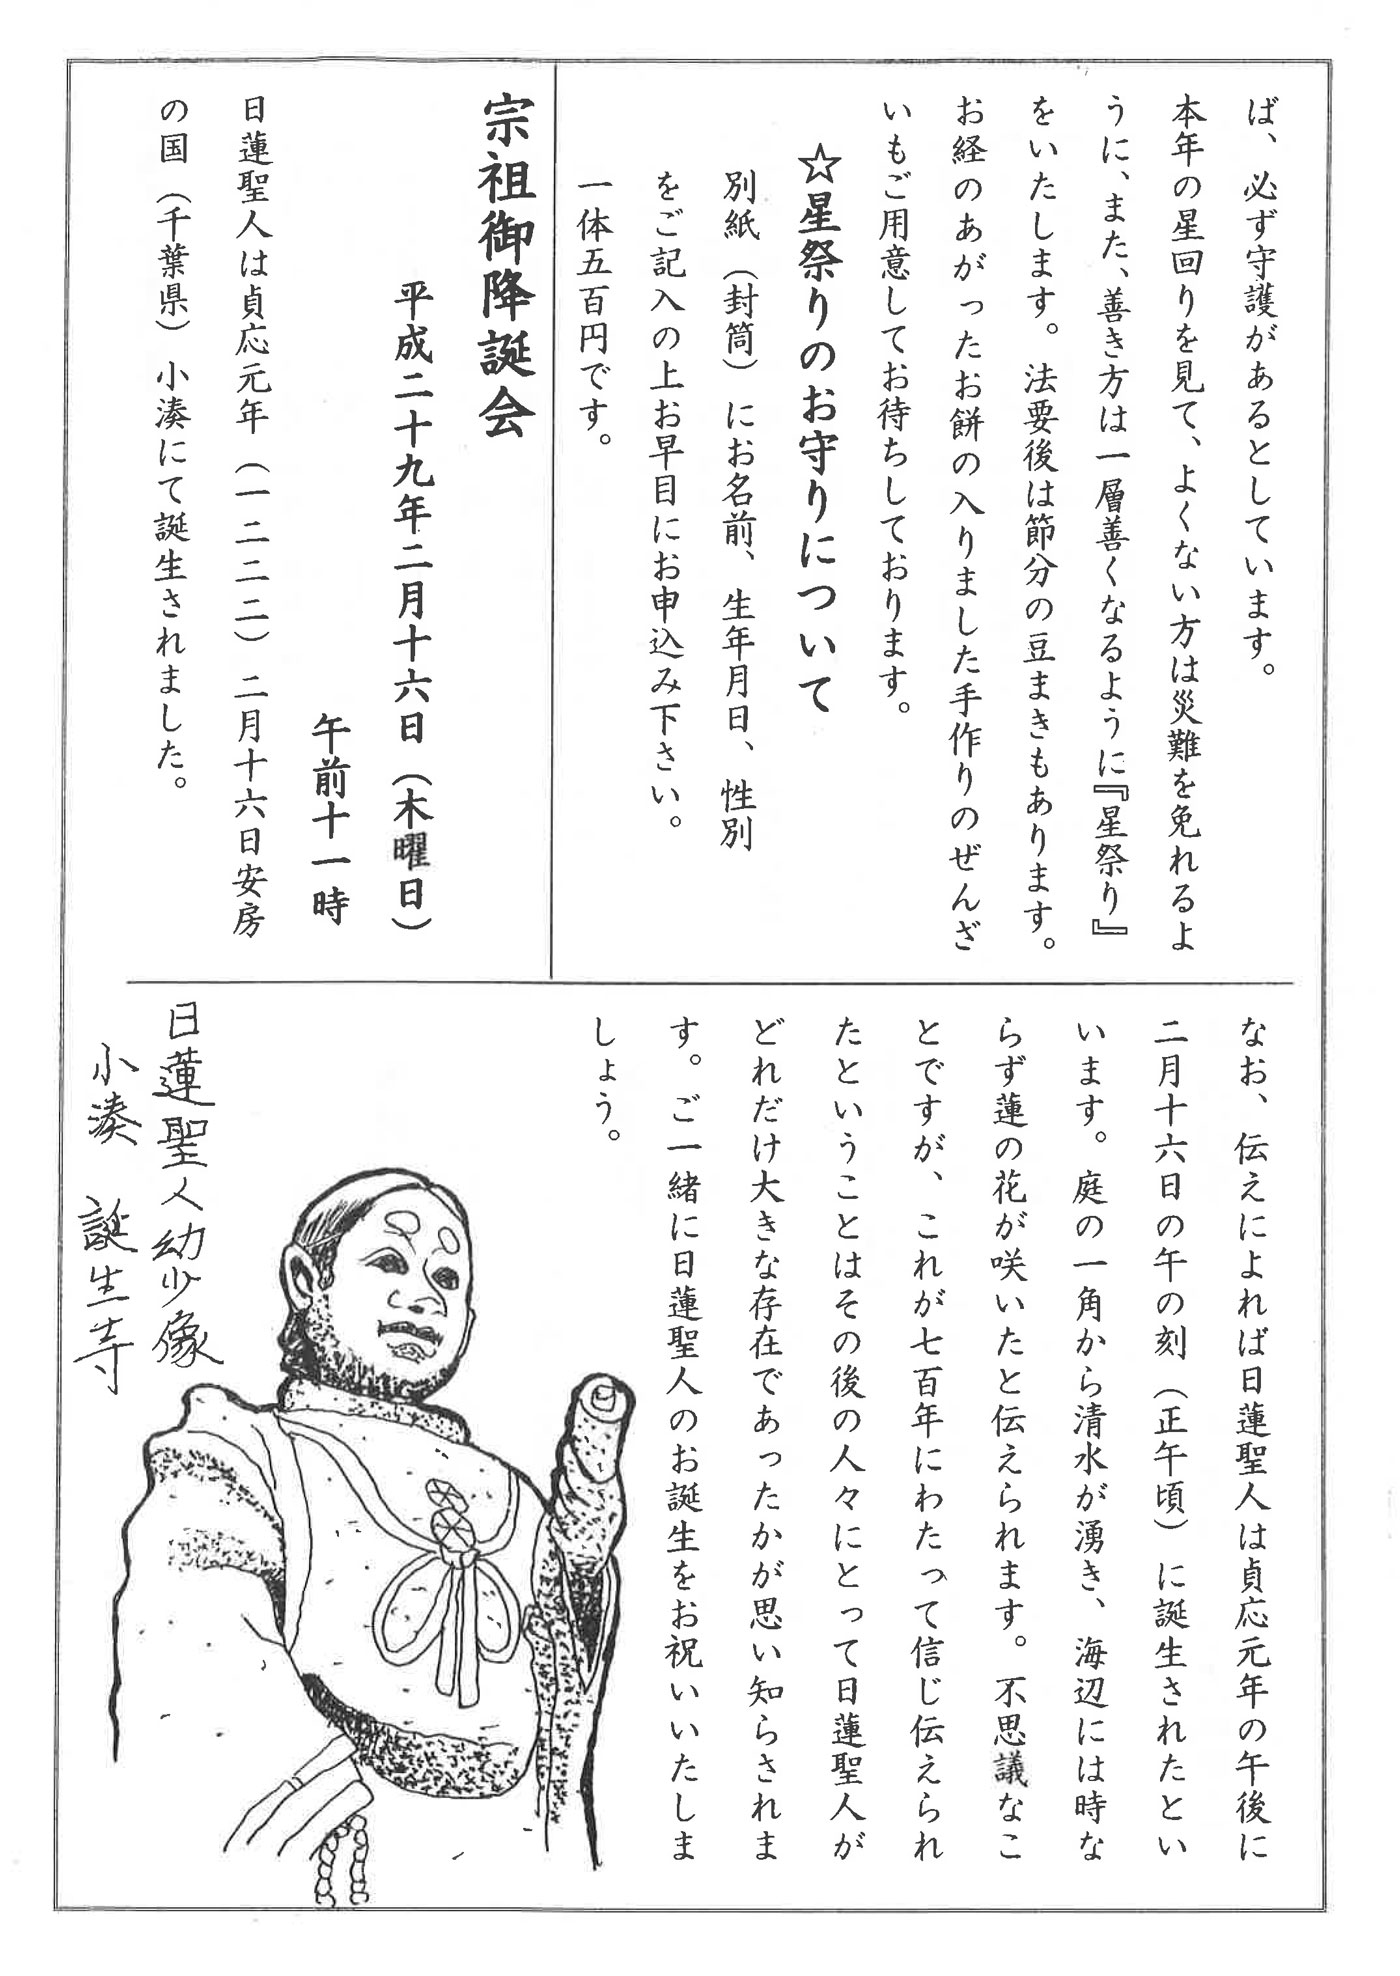 ば、必ず守護があるとしています。
本年の星回りを見て、よくない方は災難を免れるよ
うに、また、善き方は一層善くなるように『星祭り』
をいたします。法要後は節分の豆まきもあります。
お経のあがったお餅の入りました手作りのぜんざ
いもご用意してお待ちしております。
☆星祭りのお守りについて
別紙（封筒）にお名前、生年月日、性別
をご記入の上お早目にお申込み下さい。
一体五百円です。
宗祖御降誕会
平成二十九年二月十六日（木曜日）
午前十一時
日蓮聖人は貞応元年（一二二二）二月十六日安房
の国（千葉県）小湊にて誕生されました。
なお、伝えによれば日蓮聖人は貞応元年の午後に
二月十六日の午の刻（正午頃）に誕生されたとい
います。庭の一角から清水が湧き、海辺には時な
らず蓮の花が咲いたと伝えられます。不思議なこ
とですが、これが七百年にわたって信じ伝えられ
たということはその後の人々にとって日蓮聖人が
どれだけ大きな存在であったかが思い知らされま
す。ご一緒に日蓮聖人のお誕生をお祝いいたしま
しょう。
日蓮聖人幼少像
小湊 誕生寺